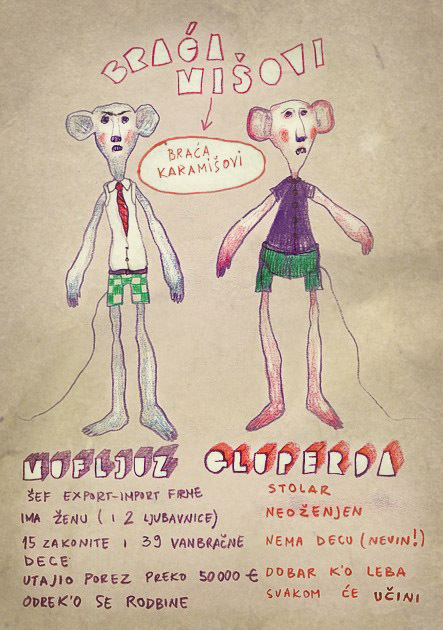 BRAĆA
MIŠOVI
BRAĆA
KARAMIŠOVI
MUFLJUZ
ŠEF EXPORT-IMPORT FIRME
IMA ŽENU (I 2 LJUBAVNICE)
15 ZAKONITE I 39 VANBRAČNE
DECE
UTAJIO POREZ PREKO 50000 €
ODREK'O SE RODBINE
GLUPERDA
STOLAR
NEOŽENJEN
NEMA DECU (NEVIN!)
DOBAR K'O LEBA
SVAKOM ĆE UČINI